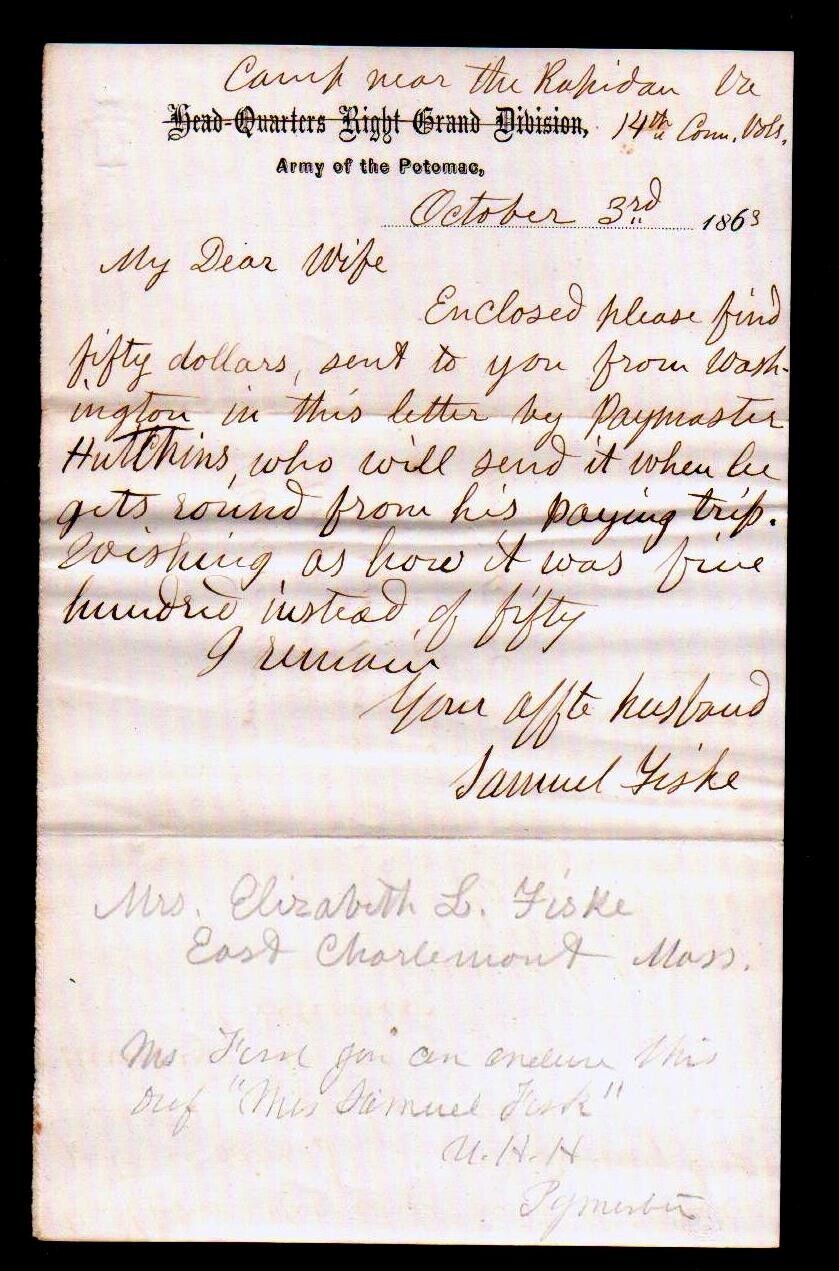 Camp near the Rapidan Va
Head-Quarters Right Grand Division, 14th Conn. Vols.
Army of the Potomac,
October 3rd 1863
My Dear Wife
Enclosed please find
fifty dollars, sent to you from Wash-
ington in this letter by Paymaster
Hutchins, who will send it when he
gets round from his paying trip.
Wishing as how it was five
hundred instead of fifty
I remain
Your affte husband
Samuel Fiske
Mrs. Elizabeth L. Fiske
East Charlemont Mass.
you can this
"Mrs Samuel Fisk"
U.H.H